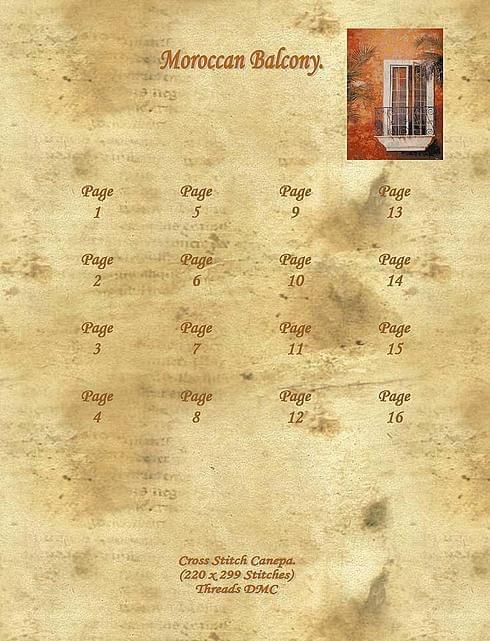 Moroccan Balcony.
Page Page Page Page
1 5 9 13
Page Page Page Page
2 6 10 14
Page Page Page Page
3 7 11 15
Page Page Page Page
4 8 12 16
Cross Stitch Canepa.
(220 x 299 Stitches)
Threads DMC